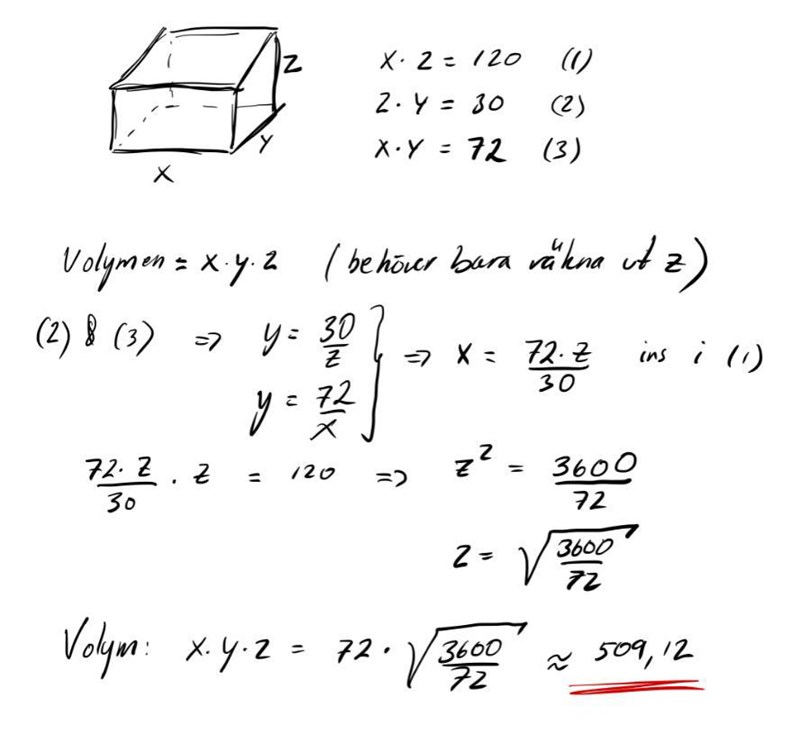 z
x
y
x · z = 120 (1)
z · y = 30 (2)
x · y = 72 (3)
Volymen = x · y · z (behöver bara räkna ut z)
(2) & (3) ⇒ y = 30/z
y = 72/x } ⇒ x = 72 · z/30 ins i (1)
72 · z/30 · z = 120 ⇒ z² = 3600/72
z = √(3600/72)
Volym: x · y · z = 72 · √(3600/72) ≈ 509,12